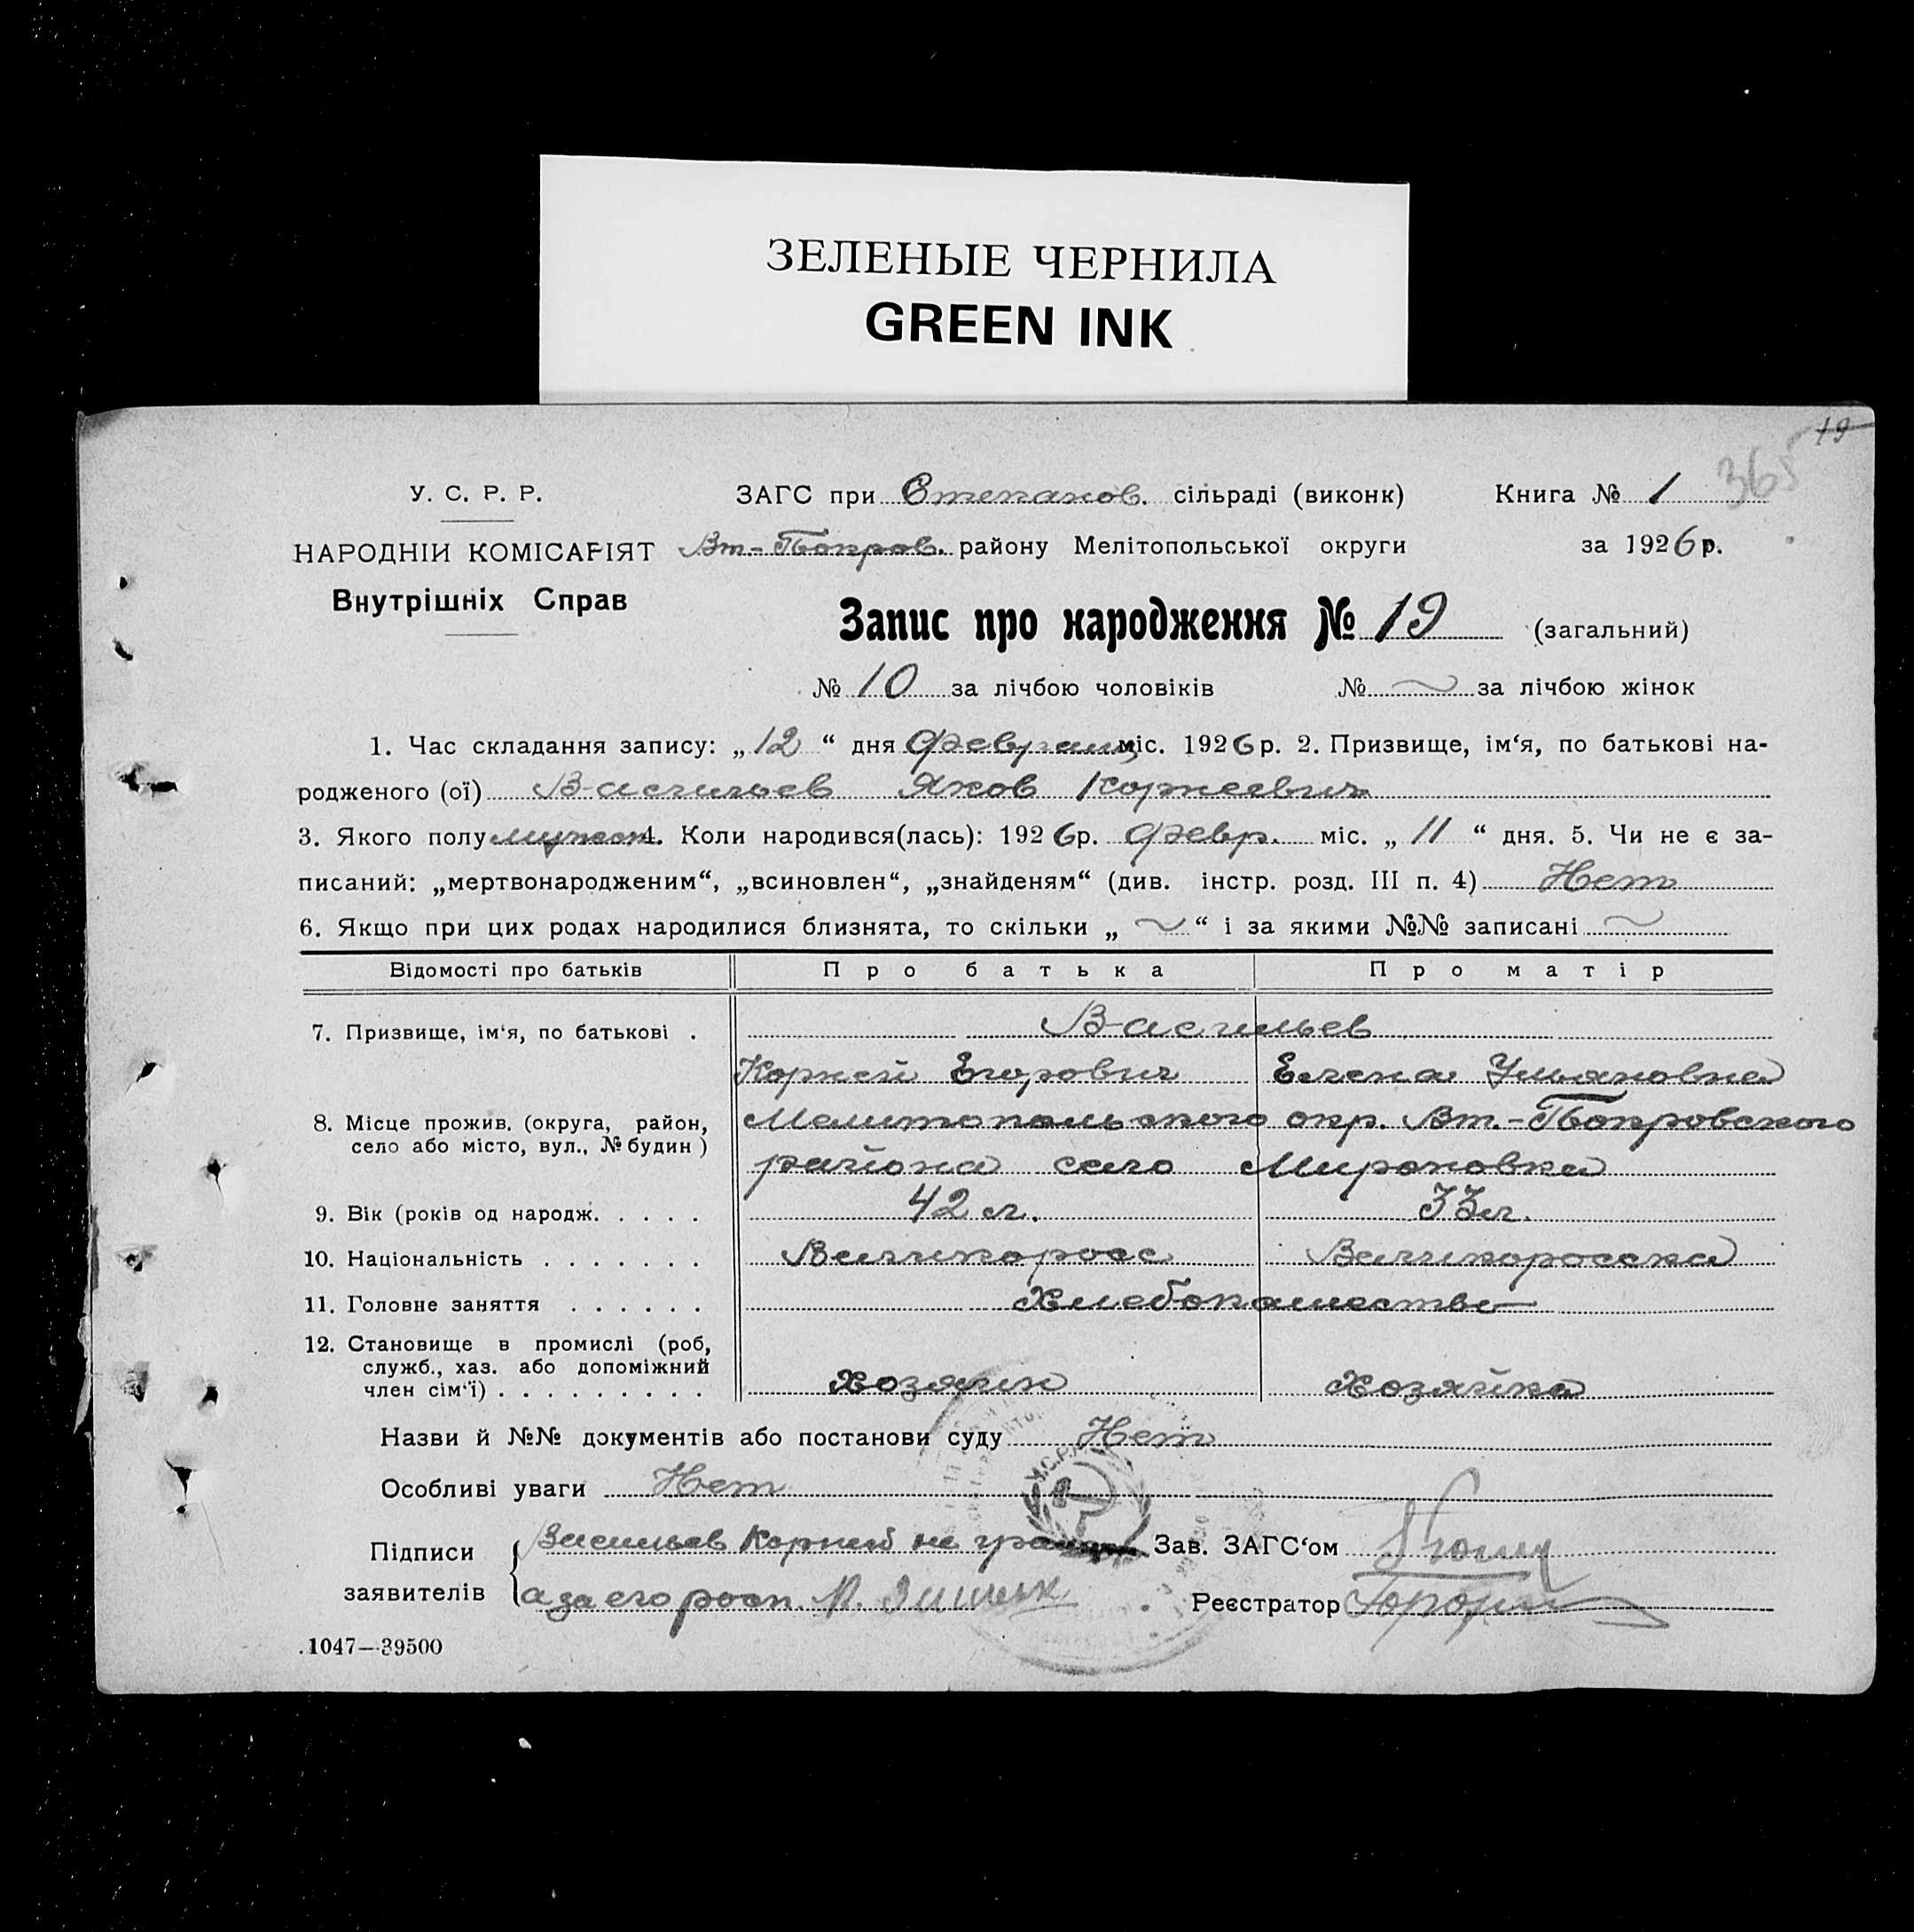 ЗЕЛЕНЫЕ ЧЕРНИЛА
GREEN INK
19
365
У. С. Р. Р. ЗАГС при Степанов. сільраді (виконк) Книга № 1
НАРОДНІИ КОМІСАРІЯТ Вт-Покров. району Мелітопольської округи за 1926 р.
Внутрішніх Справ
Запис про народження № 19 (загальний)
№ 10 за лічбою чоловіків № ~ за лічбою жінок
1. Час складання запису: „12“ дня февраля міс. 1926 р. 2. Призвище, ім‘я, по батькові на-
родженого (ої) Васильев Яков Корнеевич
3. Якого полу мужск 4. Коли народився(лась): 1926 р. февр. міс. „11“ дня. 5. Чи не є за-
писаний: „мертвонародженим“, „всиновлен“, „знайденям“ (див. інстр. розд. III п. 4) Нет
6. Якщо при цих родах народилися близнята, то скільки „~“ і за якими №№ записані ~
Відомості про батьків Про батька Про матір
7. Призвище, ім‘я, по батькові . Васильев
Корней Егорович Елена Ульяновна
8. Місце прожив. (округа, район, Мелитопольского окр. Вт.-Покровского
село або місто, вул., № будин) района село Мироновка
9. Вік (років од народж. . . . . 42 л. 33 л.
10. Національність . . . . . . . Великоросс Великоросска
11. Головне заняття . . . . . . Хлебопашество
12. Становище в промислі (роб,
служб., хаз. або допоміжний
член сім‘ї) . . . . . . . . . Хозяин Хозяйка
Назви й №№ документів або постанови суду Нет
Особливі уваги Нет
У.С.Р.Р.
Підписи Васильев Корней не Зав. ЗАГС‘ом
заявителів а за его росп. Реєстратор
1047—39500